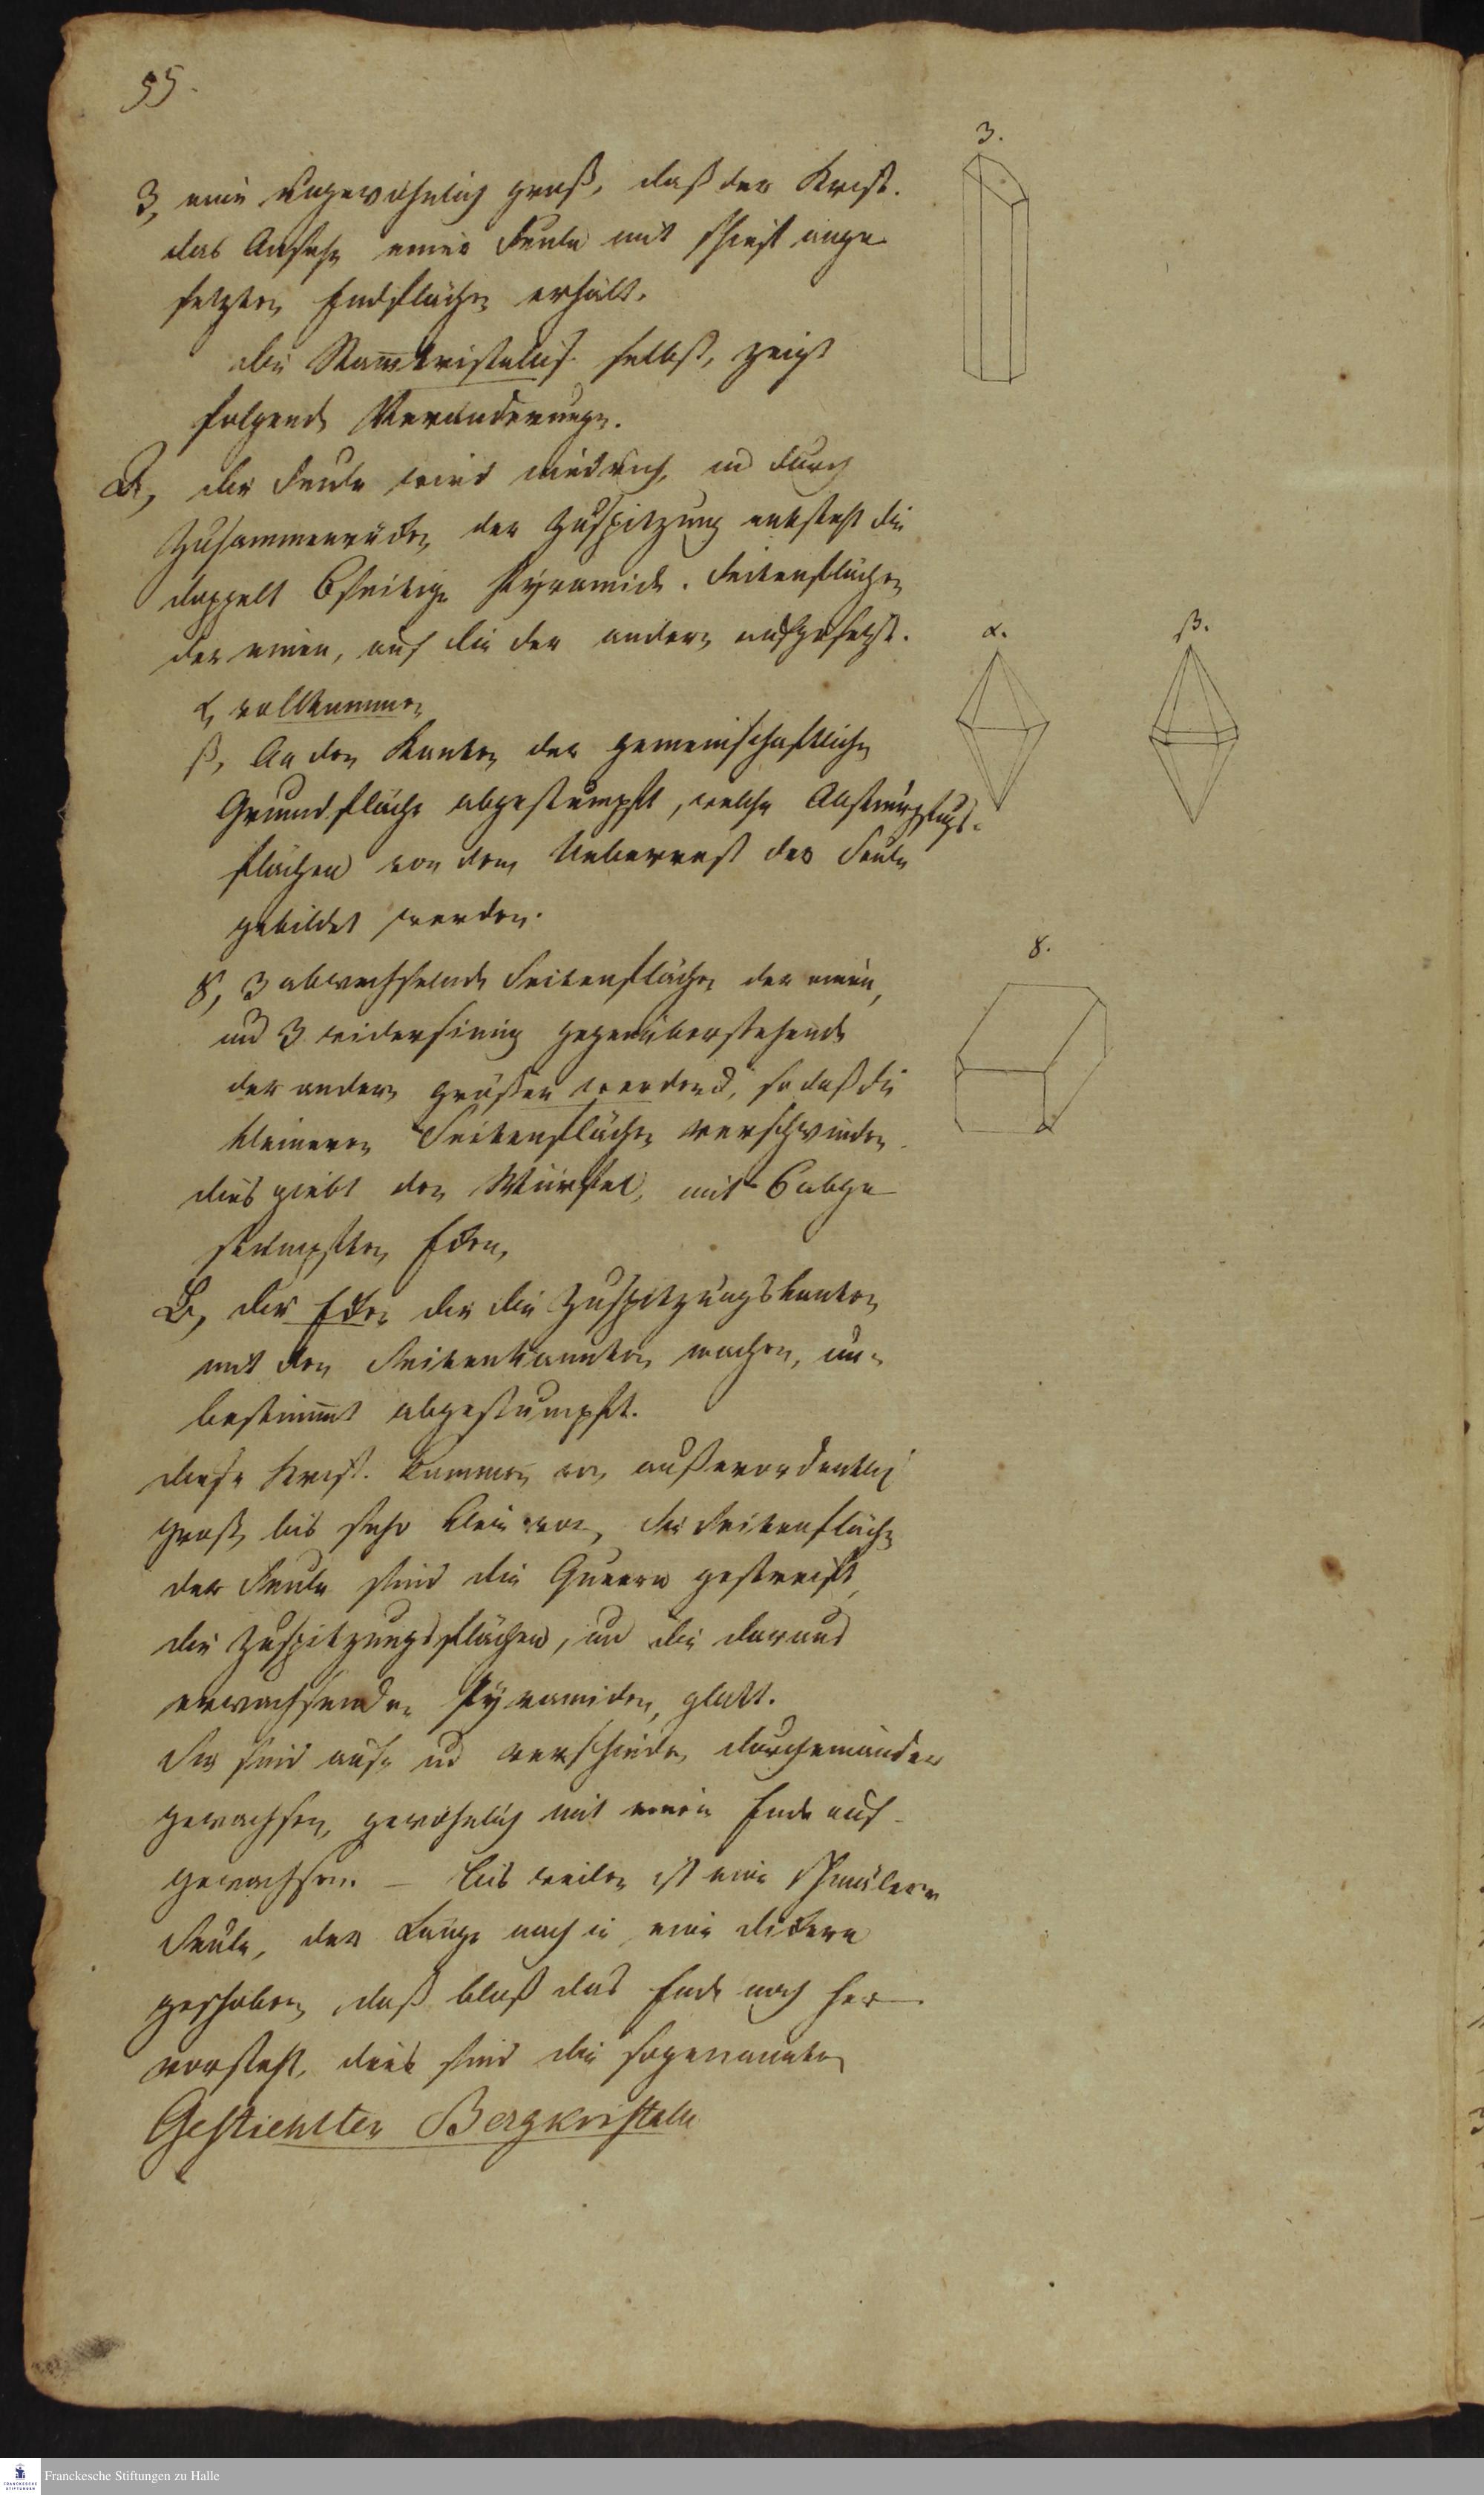 55.
3.
3, eine ungewöhnlich groß, daß der Krist.
das Ansehn einer Seule mit schief ange
setzten Endflächen erhält.
die Stam̅kristallis. selbst, zeigt
folgende Veränderungen.
A, die Seule wird niedrich, und durch
Zusammenrücken der Zuspitzung entsteht die
doppelt 6seitige Pÿramide. Seitenflächen
der einen, auf die der andern aufgesetzt.
α. β.
α, vollkommen
β, An den Kanten der gemeinschaftlichen
Grundfläche abgestumpft, welche Abstumpfungs-
flächen von dem Ueberrest der Seule
gebildet werden.
γ.
γ, 3 abwechselnde Seitenflächen der einen,
und 3 widersinnig gegenüberstehende
der andern größer werdend, so daß die
kleineren Seitenflächen verschwinden.
dies giebt den Würfel, mit 6 abge
stumpften Ecken,
B, die Ecken die die Zuspitzungskanten
mit den Seitenkannten machen, un-
bestim̅t abgestumpft.
diese Krist. kommen von außerordentlich
groß bis sehr klein vor, die Seitenflächen
der Seule sind die Queere gestreift,
die Zuspitzungsflächen, und die daraus
erwachsenden Pÿramiden, glatt.
Sie sind auf und verschieden durcheinander
gewachsen, gewöhnlich mit einem Ende auf-
gewachsen. – bis weilen ist eine schmälere
Seule, der Länge nach in eine dickere
geschoben, daß bloß das Ende noch her
vorsteht, dies sind die sogenannten
Gestiehlten Bergkristalle
Franckesche Stiftungen zu Halle